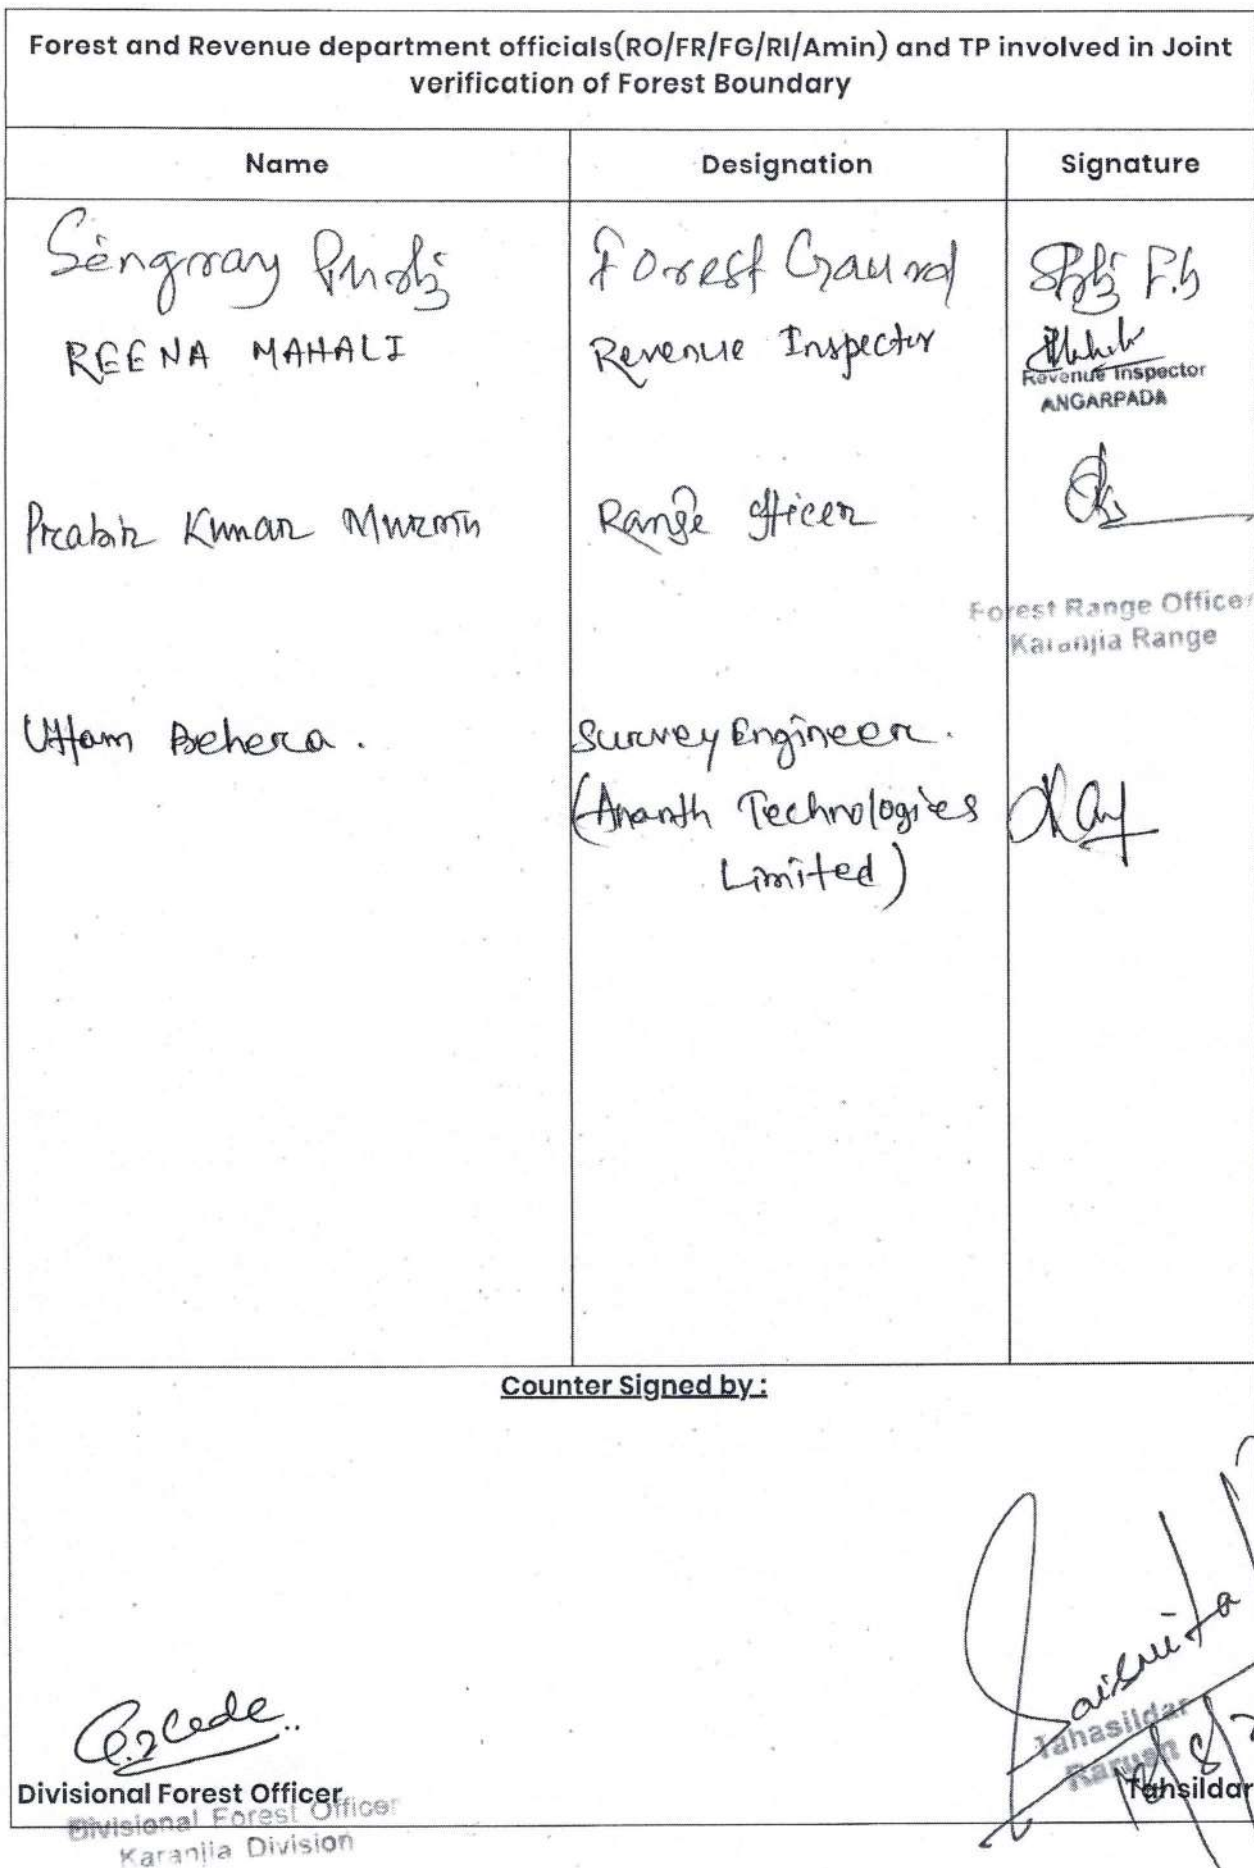 Forest and Revenue department officials(RO/FR/FG/RI/Amin) and TP involved in Joint
verification of Forest Boundary
Name Designation Signature
Sengray Forest Gaurd F.G
REENA MAHALI Revenue Inspector
Revenue Inspector
ANGARPADA
Prabir Kumar Murmu Range Officer
Forest Range Officer
Karanjia Range
Uttam Behera. Survey Engineer.
(Ananth Technologies
Limited)
Counter Signed by :
Saismita
Tahasildar
Raruan
Divisional Forest Officer Tahsildar
Divisional Forest Officer
Karanjia Division